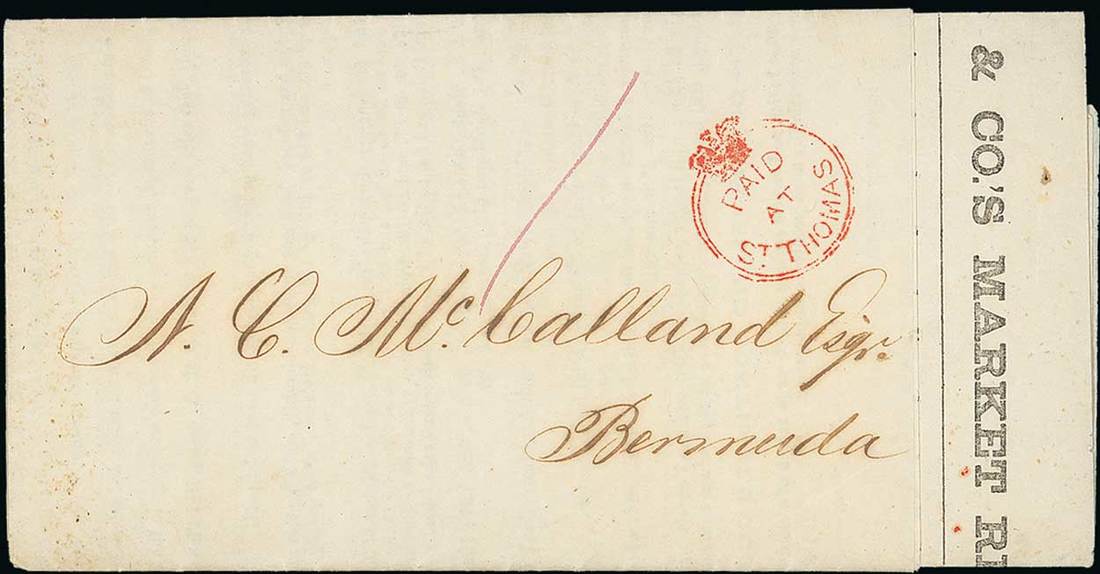 PAID
AT
ST. THOMAS
N. C. Mc. Calland Esqr.
Bermuda
& CO.'S MARKET